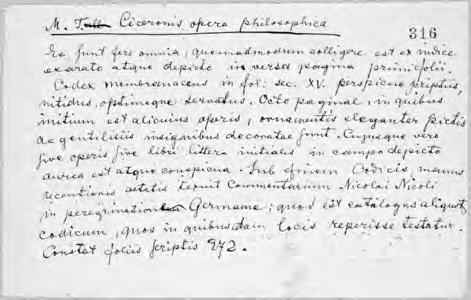 M. Tulli Ciceronis opera philosophica
316
Ea sunt fere omnia, quemadmodum colligere est ex indice
exarato atque depicto in versa pagina primi folii.
Codex membranaceus in fol: sec. XV. perspicue scriptus,
nitidus, optimeque servatus. Octo paginae, in quibus
initium est alicuius operis, ornamentis eleganter pictis
ac gentilitiis insignibus decoratae sunt. Cujusque vero
sive operis sive libri littera initialis in campo depicto
aurea est atque conspicua. Sub finem Codicis manus
recentioris aetatis Commentarium Nicolai Nicoli
in peregrinatione Germaniae; quod est catalogus aliquot
codicum, quos in quibusdam locis reperisse testatur.
Constat foliis scriptis 272.